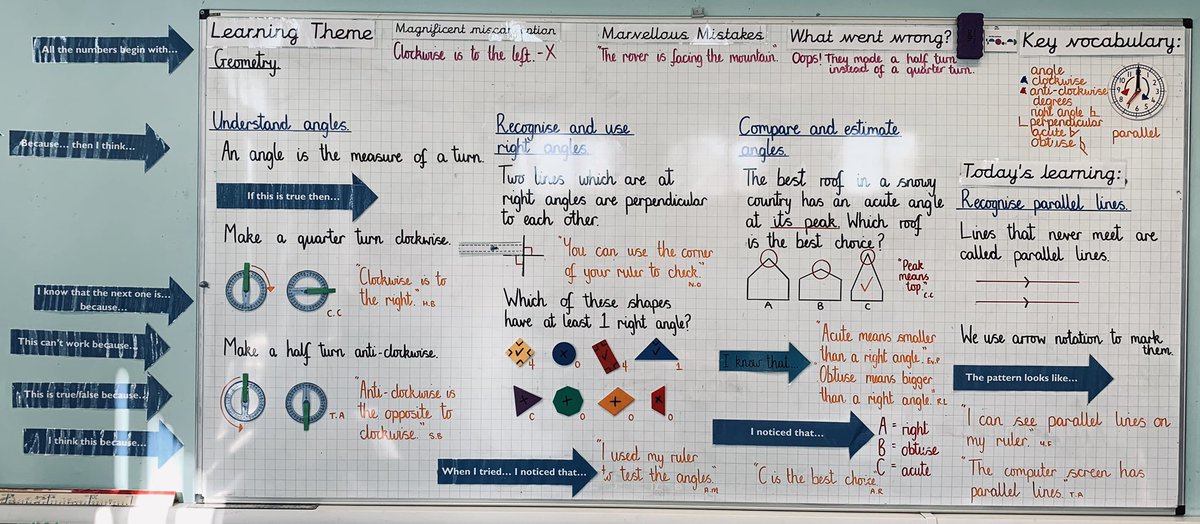 All the numbers begin with...
Because... then I think...
I know that the next one is...
because...
This can't work because...
This is true/false because...
I think this because...
Learning Theme
Geometry
Understand angles.
An angle is the measure of a turn.
If this is true then...
Make a quarter turn clockwise.
"Clockwise is to
the right." H.B
C.C
Make a half turn anti-clockwise.
"Anti-clockwise is
the opposite to
clockwise." S.B
T.A
Magnificent misconception
Clockwise is to the left. - X
Marvellous Mistakes
"The rover is facing the mountain."
What went wrong?
Oops! They made a half turn
instead of a quarter turn.
Recognise and use
right angles.
Two lines which are at
right angles are perpendicular
to each other.
"You can use the corner
of your ruler to check."
N.O
Which of these shapes
have at least 1 right angle?
4 0 4 1
C 0 0 0
When I tried... I noticed that...
"I used my ruler
to test the angles."
A.M
Compare and estimate
angles.
The best roof in a snowy
country has an acute angle
at its peak. Which roof
is the best choice?
A B C
"Peak
means
top."
C.C
I know that...
"Acute means smaller
than a right angle." Ev.P
"Obtuse means bigger
than a right angle." R.L
I noticed that...
A = right
B = obtuse
C = acute
"C is the best choice."
A.R
Key vocabulary:
angle
clockwise
anti-clockwise
degrees
right angle
perpendicular
acute
obtuse
parallel
12 1 2 3 4 5 6 7 8 9 10 11
Today's learning:
Recognise parallel lines.
Lines that never meet are
called parallel lines.
We use arrow notation to mark
them.
The pattern looks like...
"I can see parallel lines on
my ruler."
"The computer screen has
parallel lines." T.A